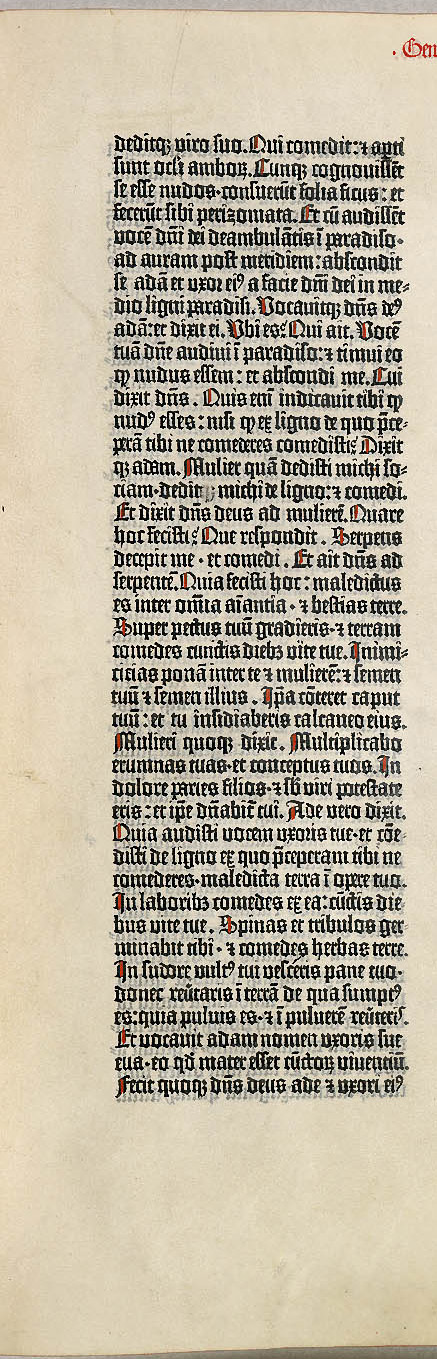 · Gen
deditq; viro suo. Qui comedit: ⁊ apti
sunt ocli amboꝝ. Cunq; cognouissēt
se esse nudos· consuerūt folia ficus: et
fecerūt sibi perizomata. Et cū audissēt
vocē dn̄i dei deambulātis ī paradiso·
ad auram post meridiem: abscondit
se adā et vxor eiꝰ a facie dn̄i dei in me-
dio ligni paradisi. Vocauitq; dn̄s deꝰ
adā: et dixit ei. Vbi es? Qui ait. Vocē
tuā dn̄e audiui ī paradiso: ⁊ timui eo
ꝙ nudus essem: et abscondi me. Cui
dixit dn̄s. Quis eni̅ indicauit tibi ꝙ
nudꝰ esses: nisi ꝙ ex ligno de quo p̄ce-
perā tibi ne comederes comedisti? Dixit
q; adam. Mulier quā dedisti michi so-
ciam· dedit michi de ligno: ⁊ comedi.
Et dixit dn̄s deus ad mulierē. Quare
hoc fecisti? Que respondit. Serpens
decepit me · et comedi. Et ait dn̄s ad
serpentē. Quia fecisti hoc: maledictus
es inter om̄ia aīantia · ⁊ bestias terre.
Super pectus tuū gradieris· ⁊ terram
comedes cunctis diebꝫ vite tue. Inimi-
cicias ponā inter te ⁊ mulierē: ⁊ semen
tuū ⁊ semen illius . Ip̄a cōteret caput
tuū: et tu insidiaberis calcaneo eius.
Mulieri quoq; dixit. Multiplicabo
erumnas tuas· et conceptus tuos. In
dolore paries filios· ⁊ sb̄ viri potestate
eris: et ip̄e dn̄abit̄ tui. Ade vero dixit.
Quia audisti vocem vxoris tue· et cōe-
disti de ligno ex quo p̄ceperam tibi ne
comederes· maledicta terra ī opere tuo.
In laboribꝫ comedes ex ea: cūctis die-
bus vite tue. Spinas et tribulos ger-
minabit tibi · ⁊ comedes herbas terre.
In sudore vultꝰ tui vesceris pane tuo·
donec reūtaris ī terrā de qua sumptꝰ
es: quia puluis es· ⁊ ī puluerē reūteris.
Et vocauit adam nomen vxoris sue
eua· eo qd̄ mater esset cūctoꝝ viuentiū.
Fecit quoq; dn̄s deus ade ⁊ vxori eiꝰ